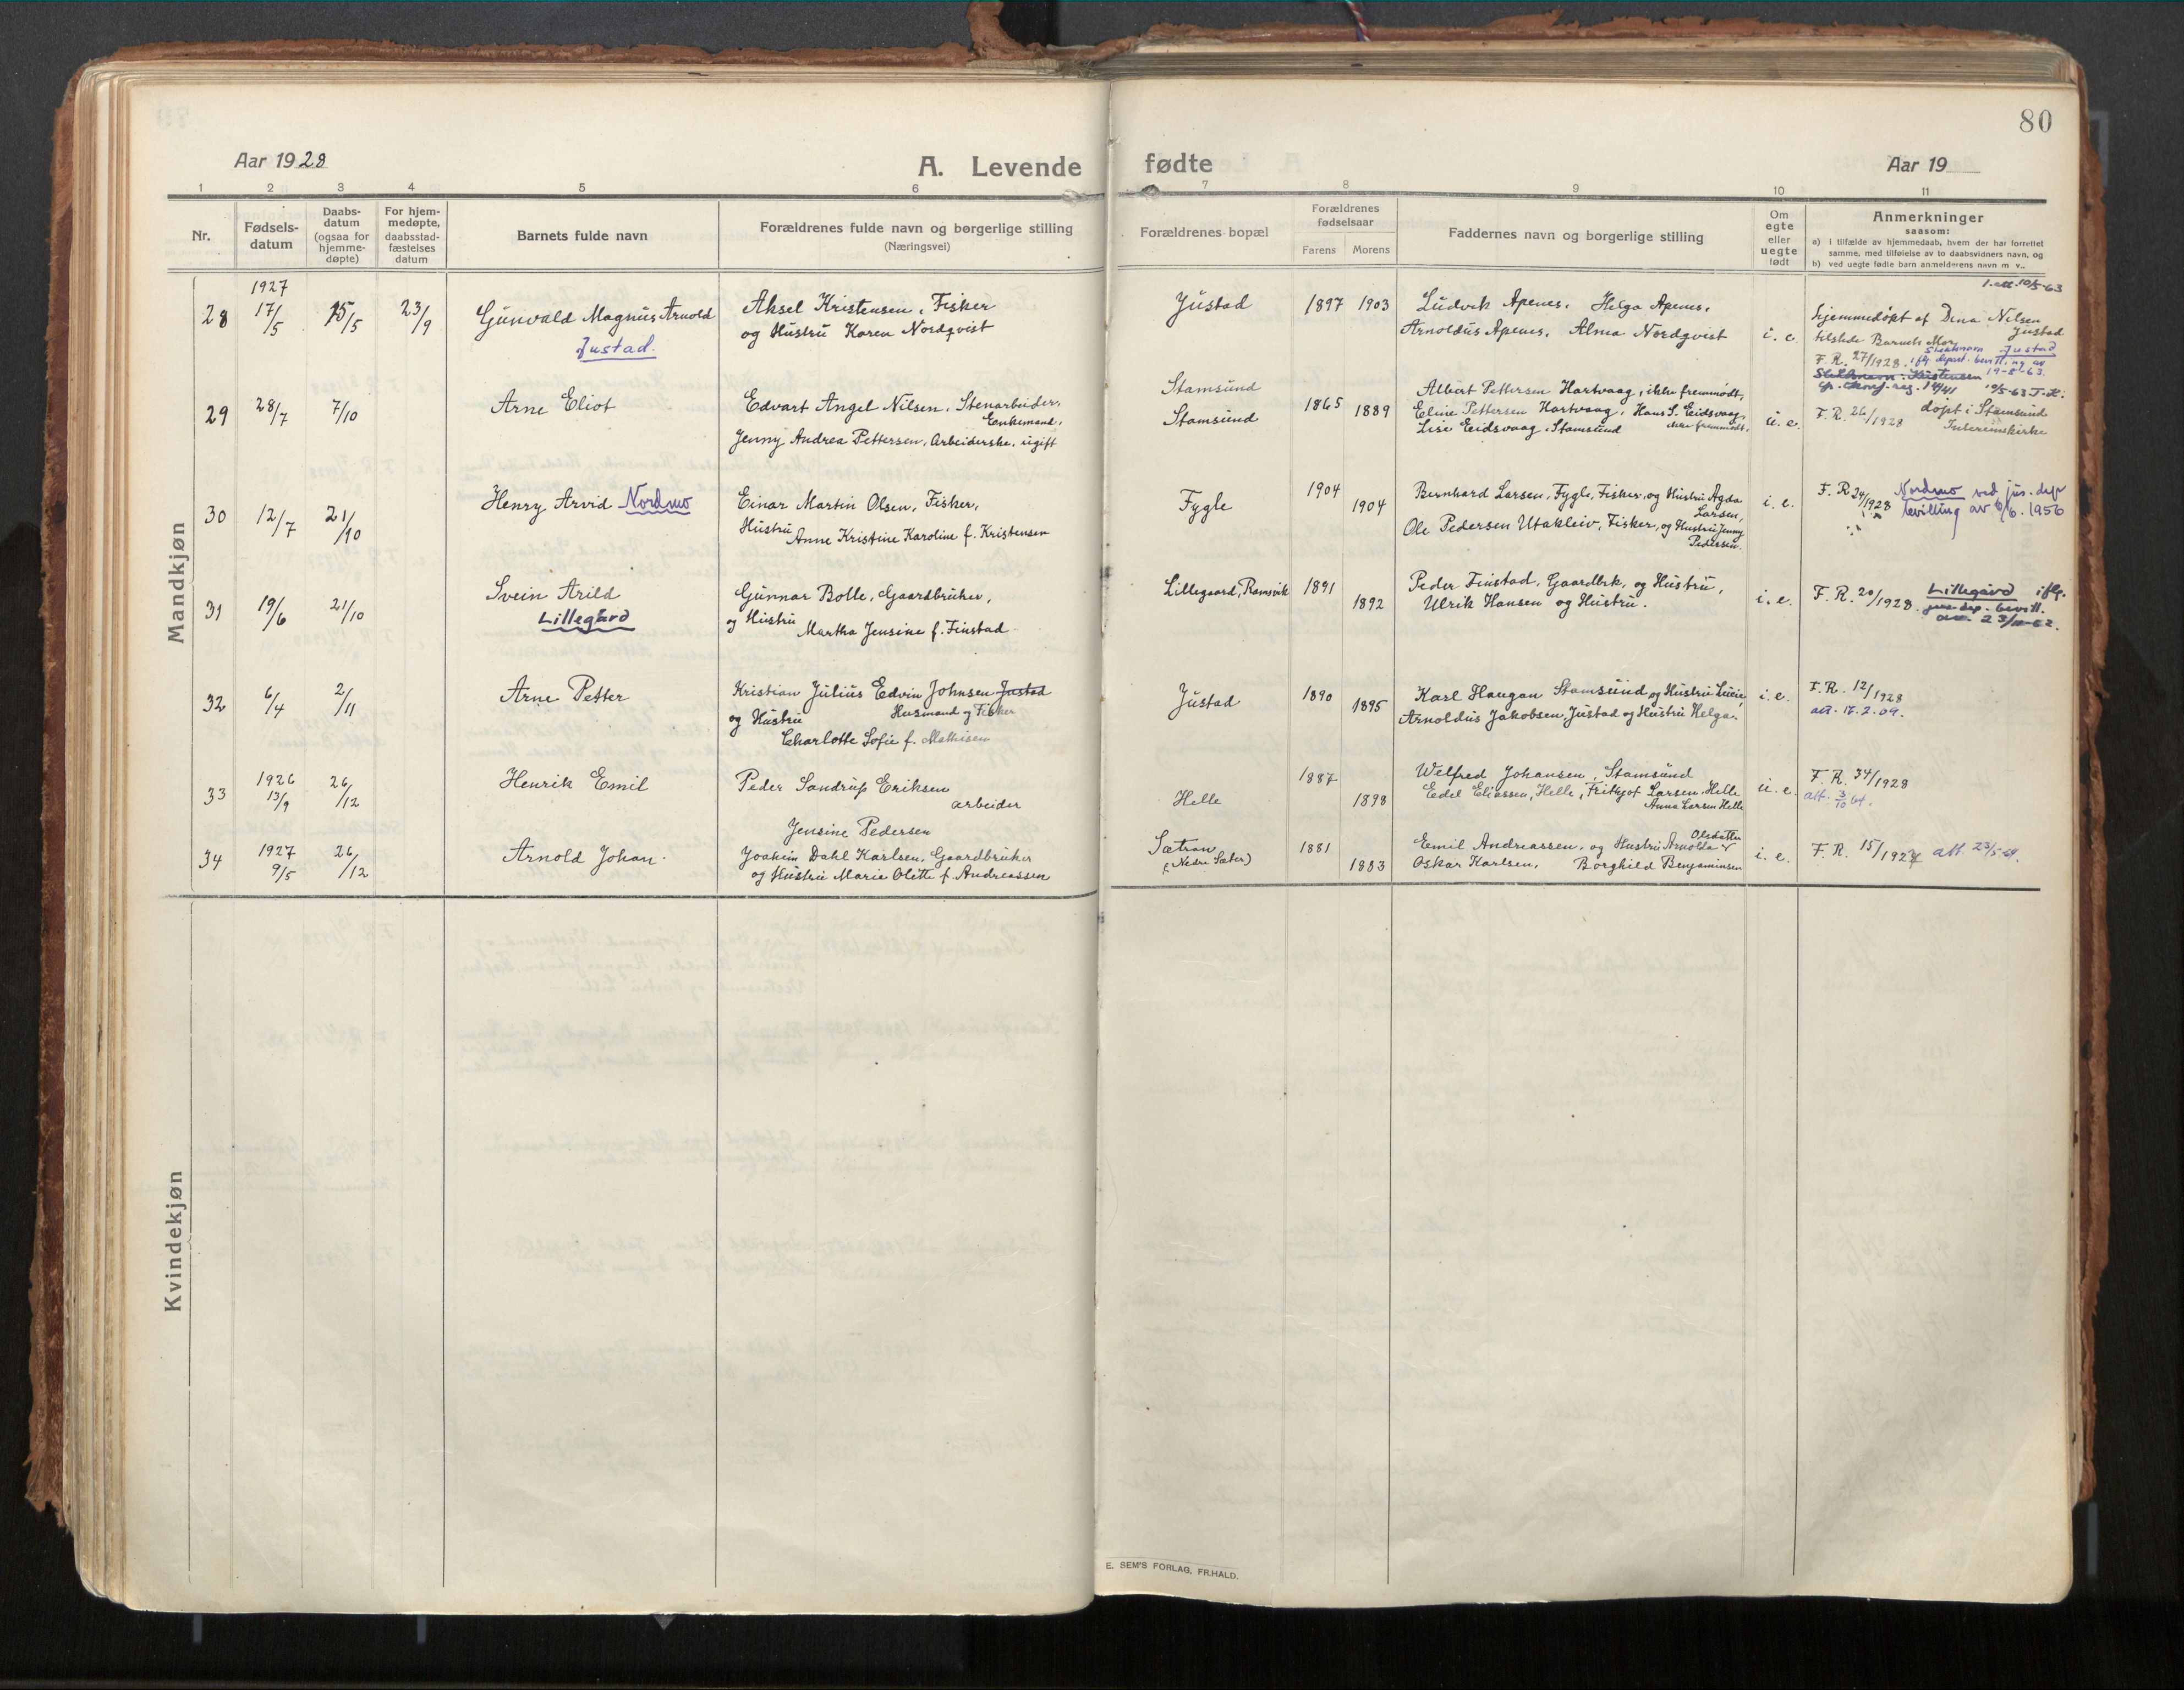 80
Aar 1928
A. Levende fødte
Aar 19
1 2 3 4 5 6 7 8 9 10 11
Nr.
Fødsels-
datum
Daabs-
datum
(ogsaa for
hjemme-
døpte)
For hjem-
medøpte,
daabsstad-
fæstelses
datum
Barnets fulde navn
Forældrenes fulde navn og børgerlige stilling
(Næringsvei)
Forældrenes bopæl
Forældrenes
fødselsaar
Farens Morens
Faddernes navn og borgerlige stilling
Om
egte
eller
uegte
født
Anmerkninger
saasom:
a) i tilfælde av hjemmedaab, hvem der har forrettet
samme, med tilføielse av to daabsvidners navn, og
b) ved uegte fødte barn anmelderens navn m. v..
Mandkjøn
1927
28 17/5 15/5 23/9 Gunvald Magnus Arnold
Justad.
Aksel Kristensen, Fisker
og Hustru Karen Nordqvist
Justad 1897 1903
Ludvik Apenes, Helga Apenes,
Arnoldus Apenes, Alma Nordqvist
i. e.
1. att. 10/5-63
Hjemmedøpt af Dina Nilsen
Justad
tilstede Barnets Mor
Slektsnavn Justad
F. R. 27/1928. iflg. depart. bevilling av
19-8-63.
Slektsnavn: Kristensen
10/5-63
29 28/7 7/10 Arne Eliot
Edvart Angel Nilsen, Stenarbeider,
Enkemand,
Jenny Andrea Pettersen, Arbeiderske, ugift
Stamsund
Stamsund
1865 1889
Albert Pettersen Hartvaag, ikke fremmødt,
Eline Pettersen Hartvaag, Hans S. Eidsvaag,
Lise Eidsvaag, Stamsund ikke fremmødt.
u. e.
F. R. 26/1928 døpt i Stamsund
Interimskirke
30 12/7 21/10 Henry Arvid Nordmo
Einar Martin Olsen, Fisker,
Hustru
Anne Kristine Karoline f. Kristensen
Fygle 1904 1904
Bernhard Larsen, Fygle, Fisker, og Hustru Agda
Larsen,
Ole Pedersen Utakleiv, Fisker, og Hustru Jenny
Pedersen.
i. e.
F. R. 24/1928 Nordmo ved jus. dep
bevilling av 6/6. 1956
31 19/6 21/10 Svein Arild
Lillegård
Gunnar Bolle, Gaardbruker,
og Hustru
Martha Jensine f. Finstad
Lillegaard, Ramsvik 1891 1892
Peder Finstad, Gaardbrk, og Hustru,
Ulrik Hansen og Hustru.
i. e.
F. R. 20/1928. Lillegård iflg.
jus. dep. bevill.
av. 23/11-62.
32 6/4 2/11 Arne Petter
Kristian Julius Edvin Johnsen Justad
og Hustru Husmand og Fisker
Charlotte Sofie f. Mathisen
Justad 1890 1895
Karl Haugan Stamsund og Hustru Lucie,
Arnoldus Jakobsen, Justad og Hustru Helga.
i. e.
F. R. 12/1928
att. 17. 2. 09.
1926
33 13/9 26/12 Henrik Emil
Peder Sandrup Eriksen
arbeider
Jensine Pedersen
Helle 1887 1898
Welfred Johansen, Stamsund
Edel Eliassen, Helle, Fritkjof Larsen Helle
Anna Larsen Helle
u. e.
F. R. 34/1928
att. 3/10 64.
1927
34 9/5 26/12 Arnold Johan.
Joakim Dahl Karlsen, Gaardbruker
og Hustru Marie Olette f. Andreassen
Sætran
(Nedre Sæter)
1881 1883
Olsdatter
Emil Andreassen, og Hustru Arnolda
Oskar Karlsen, Borghild Benjaminsen
i. e.
F. R. 15/1927 att. 23/5-69.
Kvindekjøn
E. SEM'S FORLAG, FR.HALD.